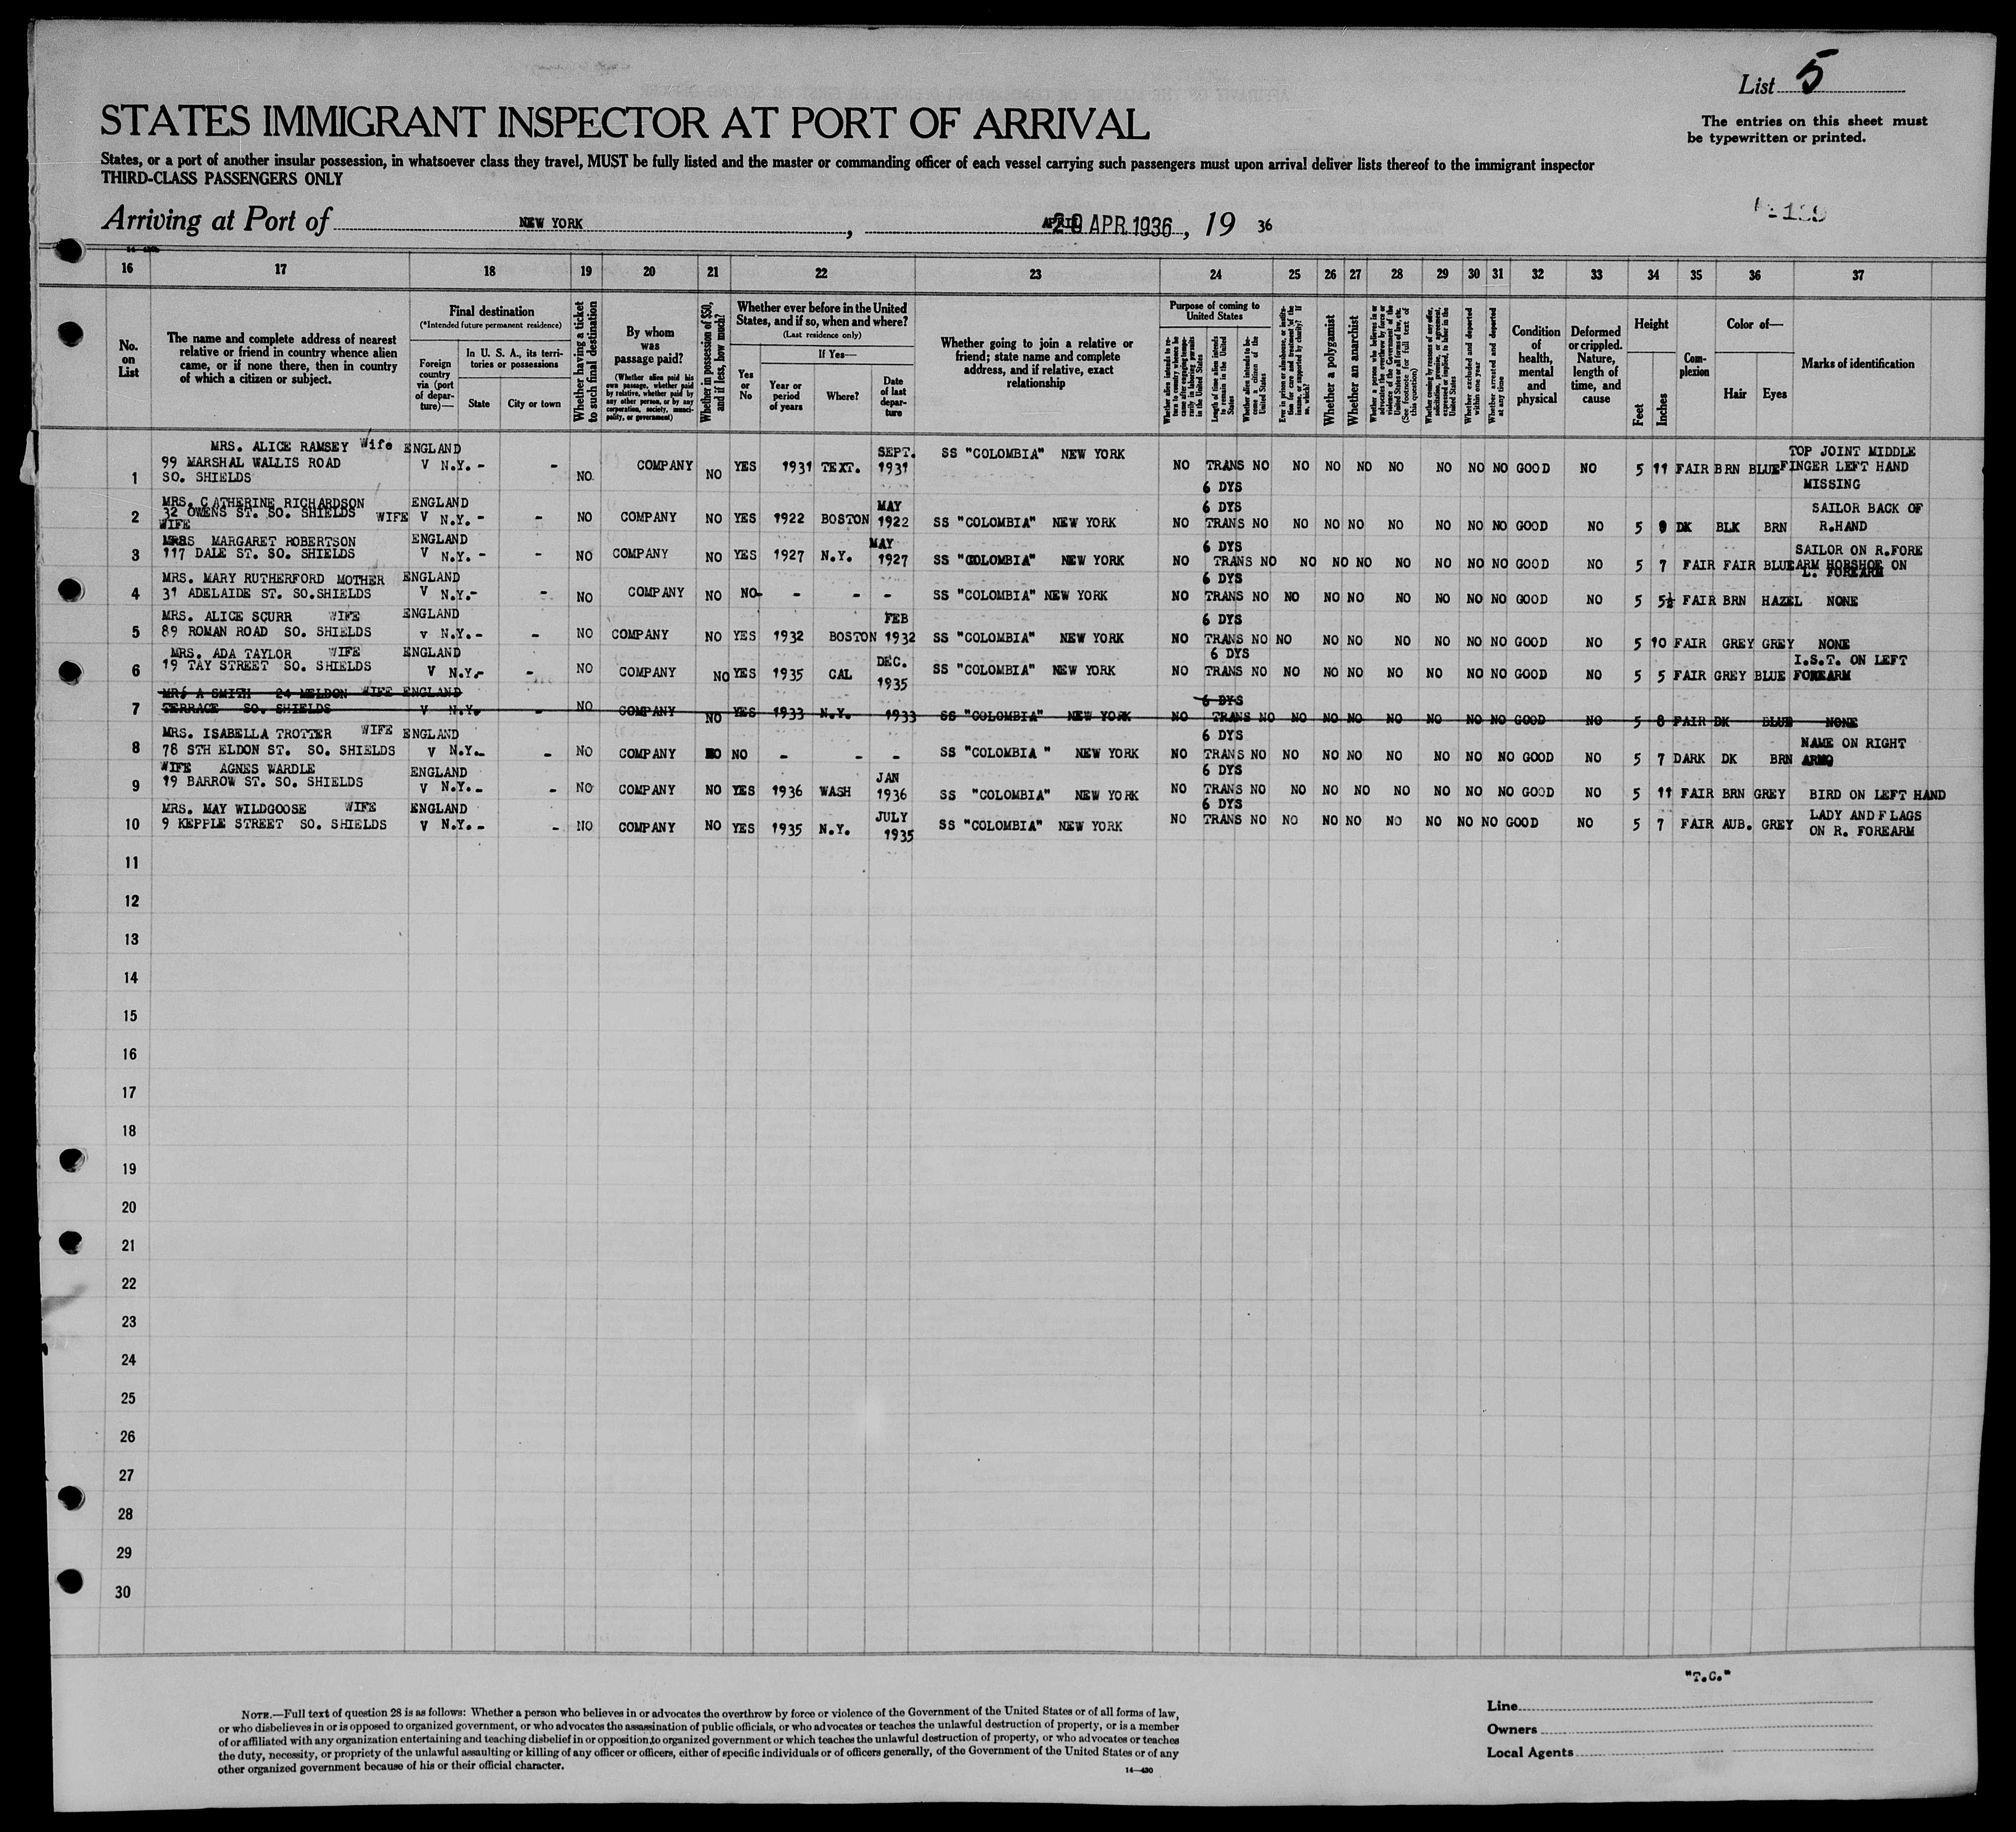 List 5
STATES IMMIGRANT INSPECTOR AT PORT OF ARRIVAL
The entries on this sheet must
be typewritten or printed.
States, or a port of another insular possession, in whatsoever class they travel, MUST be fully listed and the master or commanding officer of each vessel carrying such passengers must upon arrival deliver lists thereof to the immigrant inspector
THIRD-CLASS PASSENGERS ONLY
Arriving at Port of NEW YORK, APRIL 20 APR 1936, 19 36
16 17 18 19 20 21 22 23 24 25 26 27 28 29 30 31 32 33 34 35 36 37
No. on List
The name and complete address of nearest relative or friend in country whence alien came, or if none there, then in country of which a citizen or subject.
Final destination
(*Intended future permanent residence)
Foreign country via (port of departure)—
In U. S. A., its territories or possessions
State
City or town
Whether having a ticket to such final destination
By whom was passage paid?
(Whether alien paid his own passage, whether paid by relative, whether paid by any other person, or by any corporation, society, municipality, or government)
Whether in possession of $50, and if less, how much?
Whether ever before in the United States, and if so, when and where?
(Last residence only)
Yes or No
If Yes—
Year or period of years
Where?
Date of last departure
Whether going to join a relative or friend; state name and complete address, and if relative, exact relationship
Purpose of coming to United States
Whether alien intends to return to country whence he came after engaging temporarily in laboring pursuits in the United States
Length of time alien intends to remain in the United States
Whether alien intends to become a citizen of the United States
Ever in prison or almshouse, or institution for care and treatment of the insane, or supported by charity? If so, which?
Whether a polygamist
Whether an anarchist
Whether a person who believes in or advocates the overthrow by force or violence of the Government of the United States or all forms of law, etc. (See footnote for full text of this question)
Whether coming by reason of any offer, solicitation, promise, or agreement, expressed or implied, to labor in the United States
Whether excluded and deported within one year
Whether arrested and deported at any time
Condition of health, mental and physical
Deformed or crippled. Nature, length of time, and cause
Height
Feet
Inches
Complexion
Color of—
Hair
Eyes
Marks of identification
1 MRS. ALICE RAMSEY Wife 99 MARSHAL WALLIS ROAD SO. SHIELDS ENGLAND V N.Y. - - NO COMPANY NO YES 1931 TEXT. SEPT. 1931 SS "COLOMBIA" NEW YORK NO TRANS 6 DYS NO NO NO NO NO NO NO NO GOOD NO 5 11 FAIR BRN BLUE TOP JOINT MIDDLE FINGER LEFT HAND MISSING
2 MRS. CATHERINE RICHARDSON 32 OWENS ST. SO. SHIELDS WIFE ENGLAND V N.Y. - - NO COMPANY NO YES 1922 BOSTON MAY 1922 SS "COLOMBIA" NEW YORK NO 6 DYS TRANS NO NO NO NO NO NO NO NO GOOD NO 5 9 DK BLK BRN SAILOR BACK OF R.HAND
3 WIFE MRS MARGARET ROBERTSON 117 DALE ST. SO. SHIELDS ENGLAND V N.Y. - - NO COMPANY NO YES 1927 N.Y. MAY 1927 SS "COLOMBIA" NEW YORK NO 6 DYS TRANS NO NO NO NO NO NO NO NO GOOD NO 5 7 FAIR FAIR BLUE SAILOR ON R.FORE ARM HORSHOE ON L. FOREARM
4 MRS. MARY RUTHERFORD MOTHER 31 ADELAIDE ST. SO.SHIELDS ENGLAND V N.Y.- - NO COMPANY NO NO- - - - SS "COLOMBIA" NEW YORK NO 6 DYS TRANS NO NO NO NO NO NO NO NO GOOD NO 5 5½ FAIR BRN HAZEL NONE
5 MRS. ALICE SCURR WIFE 89 ROMAN ROAD SO. SHIELDS ENGLAND V N.Y. - - NO COMPANY NO YES 1932 BOSTON FEB 1932 SS "COLOMBIA" NEW YORK NO 6 DYS TRANS NO NO NO NO NO NO NO NO GOOD NO 5 10 FAIR GREY GREY NONE
6 MRS. ADA TAYLOR WIFE 19 TAY STREET SO. SHIELDS ENGLAND V N.Y.- - NO COMPANY NO YES 1935 CAL DEC. 1935 SS "COLOMBIA" NEW YORK NO 6 DYS TRANS NO NO NO NO NO NO NO NO GOOD NO 5 5 FAIR GREY BLUE I.S.T. ON LEFT FOREARM
7 MRS A SMITH 24 MELDON WIFE TERRACE SO. SHIELDS ENGLAND V N.Y. - NO COMPANY NO YES 1933 N.Y. 1933 SS "COLOMBIA" NEW YORK NO 6 DYS TRANS NO NO NO NO NO NO NO NO GOOD NO 5 8 FAIR DK BLUE NONE
8 MRS. ISABELLA TROTTER WIFE 78 STH ELDON ST. SO. SHIELDS ENGLAND V N.Y.- - NO COMPANY NO NO - - - SS "COLOMBIA " NEW YORK NO 6 DYS TRANS NO NO NO NO NO NO NO NO GOOD NO 5 7 DARK DK BRN NAME ON RIGHT ARM
9 WIFE AGNES WARDLE 19 BARROW ST. SO. SHIELDS ENGLAND V N.Y.- - NO COMPANY NO YES 1936 WASH JAN 1936 SS "COLOMBIA" NEW YORK NO 6 DYS TRANS NO NO NO NO NO NO NO NO GOOD NO 5 11 FAIR BRN GREY BIRD ON LEFT HAND
10 MRS. MAY WILDGOOSE WIFE 9 KEPPLE STREET SO. SHIELDS ENGLAND V N.Y.- - NO COMPANY NO YES 1935 N.Y. JULY 1935 SS "COLOMBIA" NEW YORK NO 6 DYS TRANS NO NO NO NO NO NO NO NO GOOD NO 5 7 FAIR AUB. GREY LADY AND FLAGS ON R. FOREARM
11
12
13
14
15
16
17
18
19
20
21
22
23
24
25
26
27
28
29
30
NOTE.—Full text of question 28 is as follows: Whether a person who believes in or advocates the overthrow by force or violence of the Government of the United States or of all forms of law,
or who disbelieves in or is opposed to organized government, or who advocates the assassination of public officials, or who advocates or teaches the unlawful destruction of property, or is a member
of or affiliated with any organization entertaining and teaching disbelief in or opposition to organized government or which teaches the unlawful destruction of property, or who advocates or teaches
the duty, necessity, or propriety of the unlawful assaulting or killing of any officer or officers, either of specific individuals or of officers generally, of the Government of the United States or of any
other organized government because of his or their official character.
14—430
"T.C."
Line
Owners
Local Agents